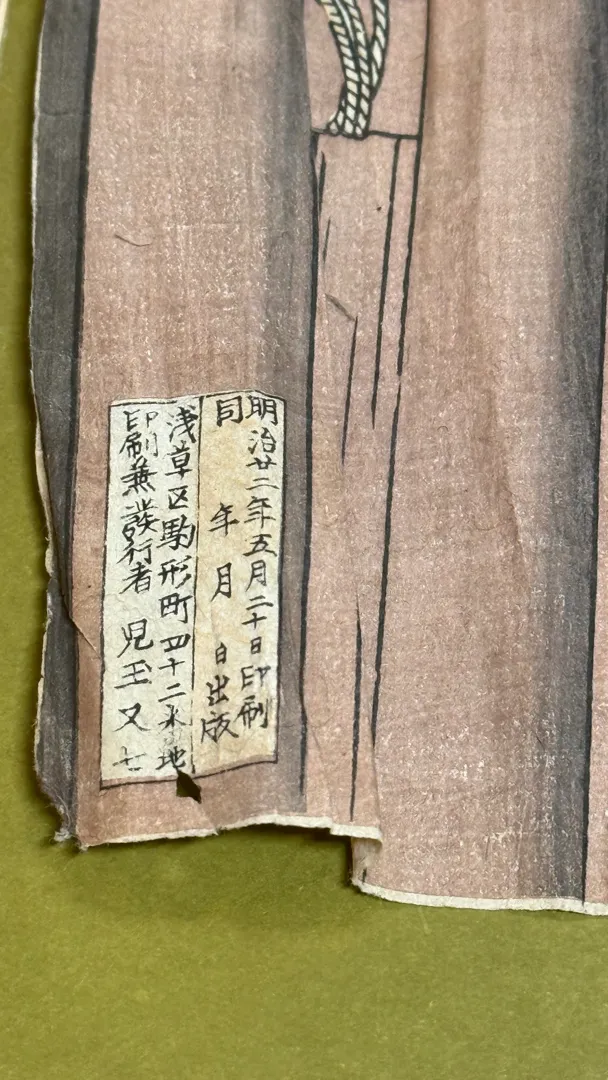 明治廿二年五月二十日印刷
同年月 日出版
浅草区駒形町四十二番地
印刷兼発行者 児玉又七